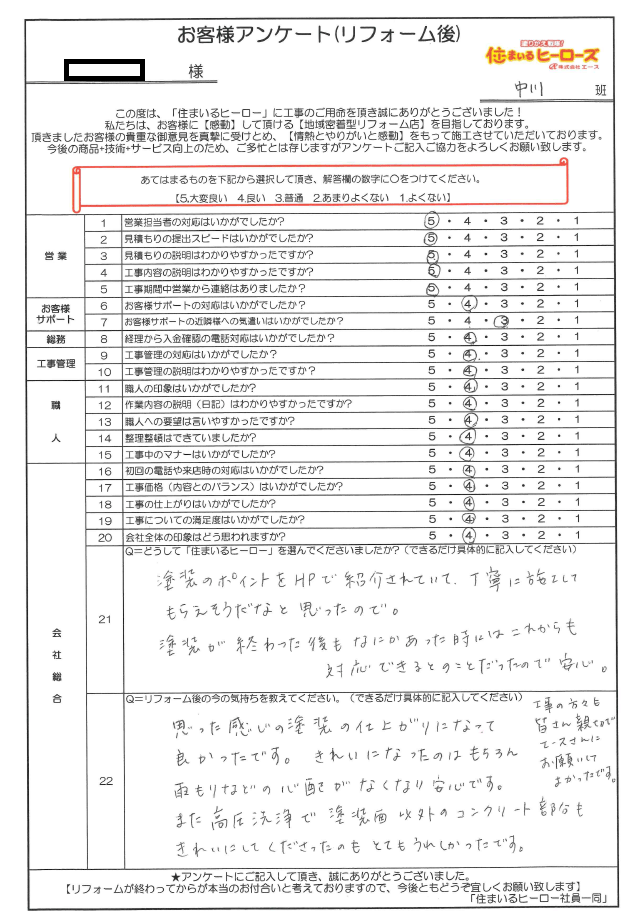 お客様アンケート(リフォーム後)
塗りかえ戦隊!
住まいるヒーローズ
株式会社エース
様
中川 班
この度は、「住まいるヒーロー」に工事のご用命を頂き誠にありがとうございました!
私たちは、お客様に【感動】して頂ける【地域密着型リフォーム店】を目指しております。
頂きましたお客様の貴重な御意見を真摯に受けとめ、【情熱とやりがいと感動】をもって施工させていただいております。
今後の商品+技術+サービス向上のため、ご多忙とは存じますがアンケートご記入ご協力をよろしくお願い致します。
あてはまるものを下記から選択して頂き、解答欄の数字に〇をつけてください。
【5.大変良い 4.良い 3.普通 2.あまりよくない 1.よくない】
営業
1 営業担当者の対応はいかがでしたか? 5・4・3・2・1
2 見積もりの提出スピードはいかがでしたか? 5・4・3・2・1
3 見積もりの説明はわかりやすかったですか? 5・4・3・2・1
4 工事内容の説明はわかりやすかったですか? 5・4・3・2・1
5 工事期間中営業から連絡はありましたか? 5・4・3・2・1
お客様
サポート
6 お客様サポートの対応はいかがでしたか? 5・4・3・2・1
7 お客様サポートの近隣様への気遣いはいかがでしたか? 5・4・3・2・1
総務
8 経理から入金確認の電話対応はいかがでしたか? 5・4・3・2・1
工事管理
9 工事管理の対応はいかがでしたか? 5・4・3・2・1
10 工事管理の説明はわかりやすかったですか? 5・4・3・2・1
職人
11 職人の印象はいかがでしたか? 5・4・3・2・1
12 作業内容の説明(日記)はわかりやすかったですか? 5・4・3・2・1
13 職人への要望は言いやすかったですか? 5・4・3・2・1
14 整理整頓はできていましたか? 5・4・3・2・1
15 工事中のマナーはいかがでしたか? 5・4・3・2・1
会社総合
16 初回の電話や来店時の対応はいかがでしたか? 5・4・3・2・1
17 工事価格(内容とのバランス)はいかがでしたか? 5・4・3・2・1
18 工事の仕上がりはいかがでしたか? 5・4・3・2・1
19 工事についての満足度はいかがでしたか? 5・4・3・2・1
20 会社全体の印象はどう思われますか? 5・4・3・2・1
21
Q=どうして「住まいるヒーロー」を選んでくださいましたか?(できるだけ具体的に記入してください)
塗装のポイントをHPで紹介されていて、丁寧に施工して
もらえそうだなと思ったので。
塗装が終わった後もなにかあった時にはこれからも
対応できるとのことだったので安心。
22
Q=リフォーム後の今の気持ちを教えてください。(できるだけ具体的に記入してください)
思った感じの塗装の仕上がりになって
良かったです。きれいになったのはもちろん
雨もりなどの心配がなくなり安心です。
また高圧洗浄で塗装面以外のコンクリート部分も
きれいにしてくださったのもとてもうれしかったです。
工事の方々も
皆さん親切で
エースさんに
お願いして
よかったです。
★アンケートにご記入して頂き、誠にありがとうございました。
【リフォームが終わってからが本当のお付合いと考えておりますので、今後ともどうぞ宜しくお願い致します】
「住まいるヒーロー社員一同」